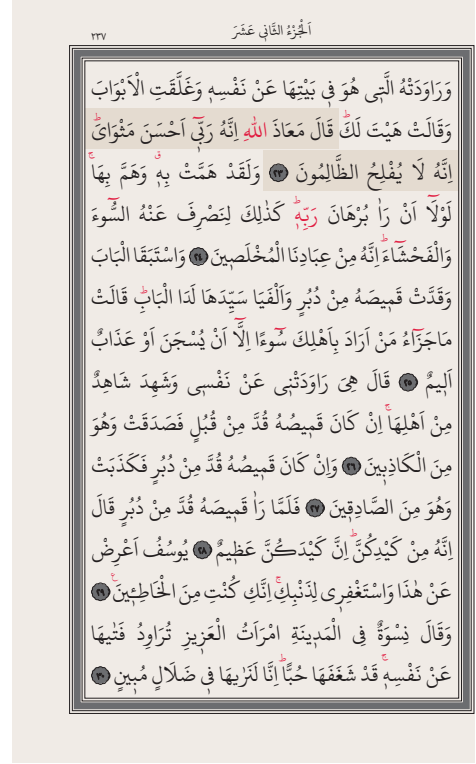 ٢٣٧ اَلْجُزْءُ الثَّانِي عَشَرَ
وَرَاوَدَتْهُ الَّتٖى هُوَ فٖى بَيْتِهَا عَنْ نَفْسِهٖ وَغَلَّقَتِ الْاَبْوَابَ
وَقَالَتْ هَيْتَ لَكَؕ قَالَ مَعَاذَ اللّٰهِ اِنَّهُ رَبّٖٓى اَحْسَنَ مَثْوَاىَؕ
اِنَّهُ لَا يُفْلِحُ الظَّالِمُونَ ﴿٢٣﴾ وَلَقَدْ هَمَّتْ بِهٖۗ وَهَمَّ بِهَاۚ
لَوْلَٓا اَنْ رَاٰ بُرْهَانَ رَبِّهٖؕ كَذٰلِكَ لِنَصْرِفَ عَنْهُ السُّٓوءَ
وَالْفَحْشَٓاءَؕ اِنَّهُ مِنْ عِبَادِنَا الْمُخْلَصٖينَ ﴿٢٤﴾ وَاسْتَبَقَا الْبَابَ
وَقَدَّتْ قَمٖيصَهُ مِنْ دُبُرٍ وَاَلْفَيَا سَيِّدَهَا لَدَا الْبَابِؕ قَالَتْ
مَاجَزَٓاءُ مَنْ اَرَادَ بِاَهْلِكَ سُٓوءًا اِلَّٓا اَنْ يُسْجَنَ اَوْ عَذَابٌ
اَلٖيمٌ ﴿٢٥﴾ قَالَ هِىَ رَاوَدَتْنٖى عَنْ نَفْسٖى وَشَهِدَ شَاهِدٌ
مِنْ اَهْلِهَاۚ اِنْ كَانَ قَمٖيصُهُ قُدَّ مِنْ قُبُلٍ فَصَدَقَتْ وَهُوَ
مِنَ الْكَاذِبٖينَ ﴿٢٦﴾ وَاِنْ كَانَ قَمٖيصُهُ قُدَّ مِنْ دُبُرٍ فَكَذَبَتْ
وَهُوَ مِنَ الصَّادِقٖينَ ﴿٢٧﴾ فَلَمَّا رَاٰ قَمٖيصَهُ قُدَّ مِنْ دُبُرٍ قَالَ
اِنَّهُ مِنْ كَيْدِكُنَّؕ اِنَّ كَيْدَكُنَّ عَظٖيمٌ ﴿٢٨﴾ يُوسُفُ اَعْرِضْ
عَنْ هٰذَا وَاسْتَغْفِرٖى لِذَنْبِكِۚ اِنَّكِ كُنْتِ مِنَ الْخَاطِـٖٔينَࣖ ﴿٢٩﴾
وَقَالَ نِسْوَةٌ فِى الْمَدٖينَةِ امْرَاَتُ الْعَزٖيزِ تُرَاوِدُ فَتٰيهَا
عَنْ نَفْسِهٖۚ قَدْ شَغَفَهَا حُبًّاؕ اِنَّا لَنَرٰيهَا فٖى ضَلَالٍ مُبٖينٍ ﴿٣٠﴾